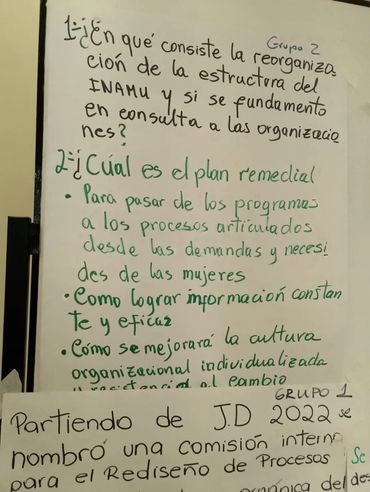 1-¿En qué consiste la reorganiza
Grupo 2
ción de la estructura del
INAMU y si se fundamento
en consulta a las organizacio
nes?
2-¿Cúal es el plan remedial
• Para pasar de los programas
a los procesos articulados
desde las demandas y necesi
des de las mujeres
• Como lograr información constan
te y eficaz
• Cómo se mejorará la cultura
organizacional individualizada
y resistencia al cambio
GRUPO 1
Partiendo de J.D 2022 se
nombró una comisión interna
para el Rediseño de Procesos Se
orgánica del des